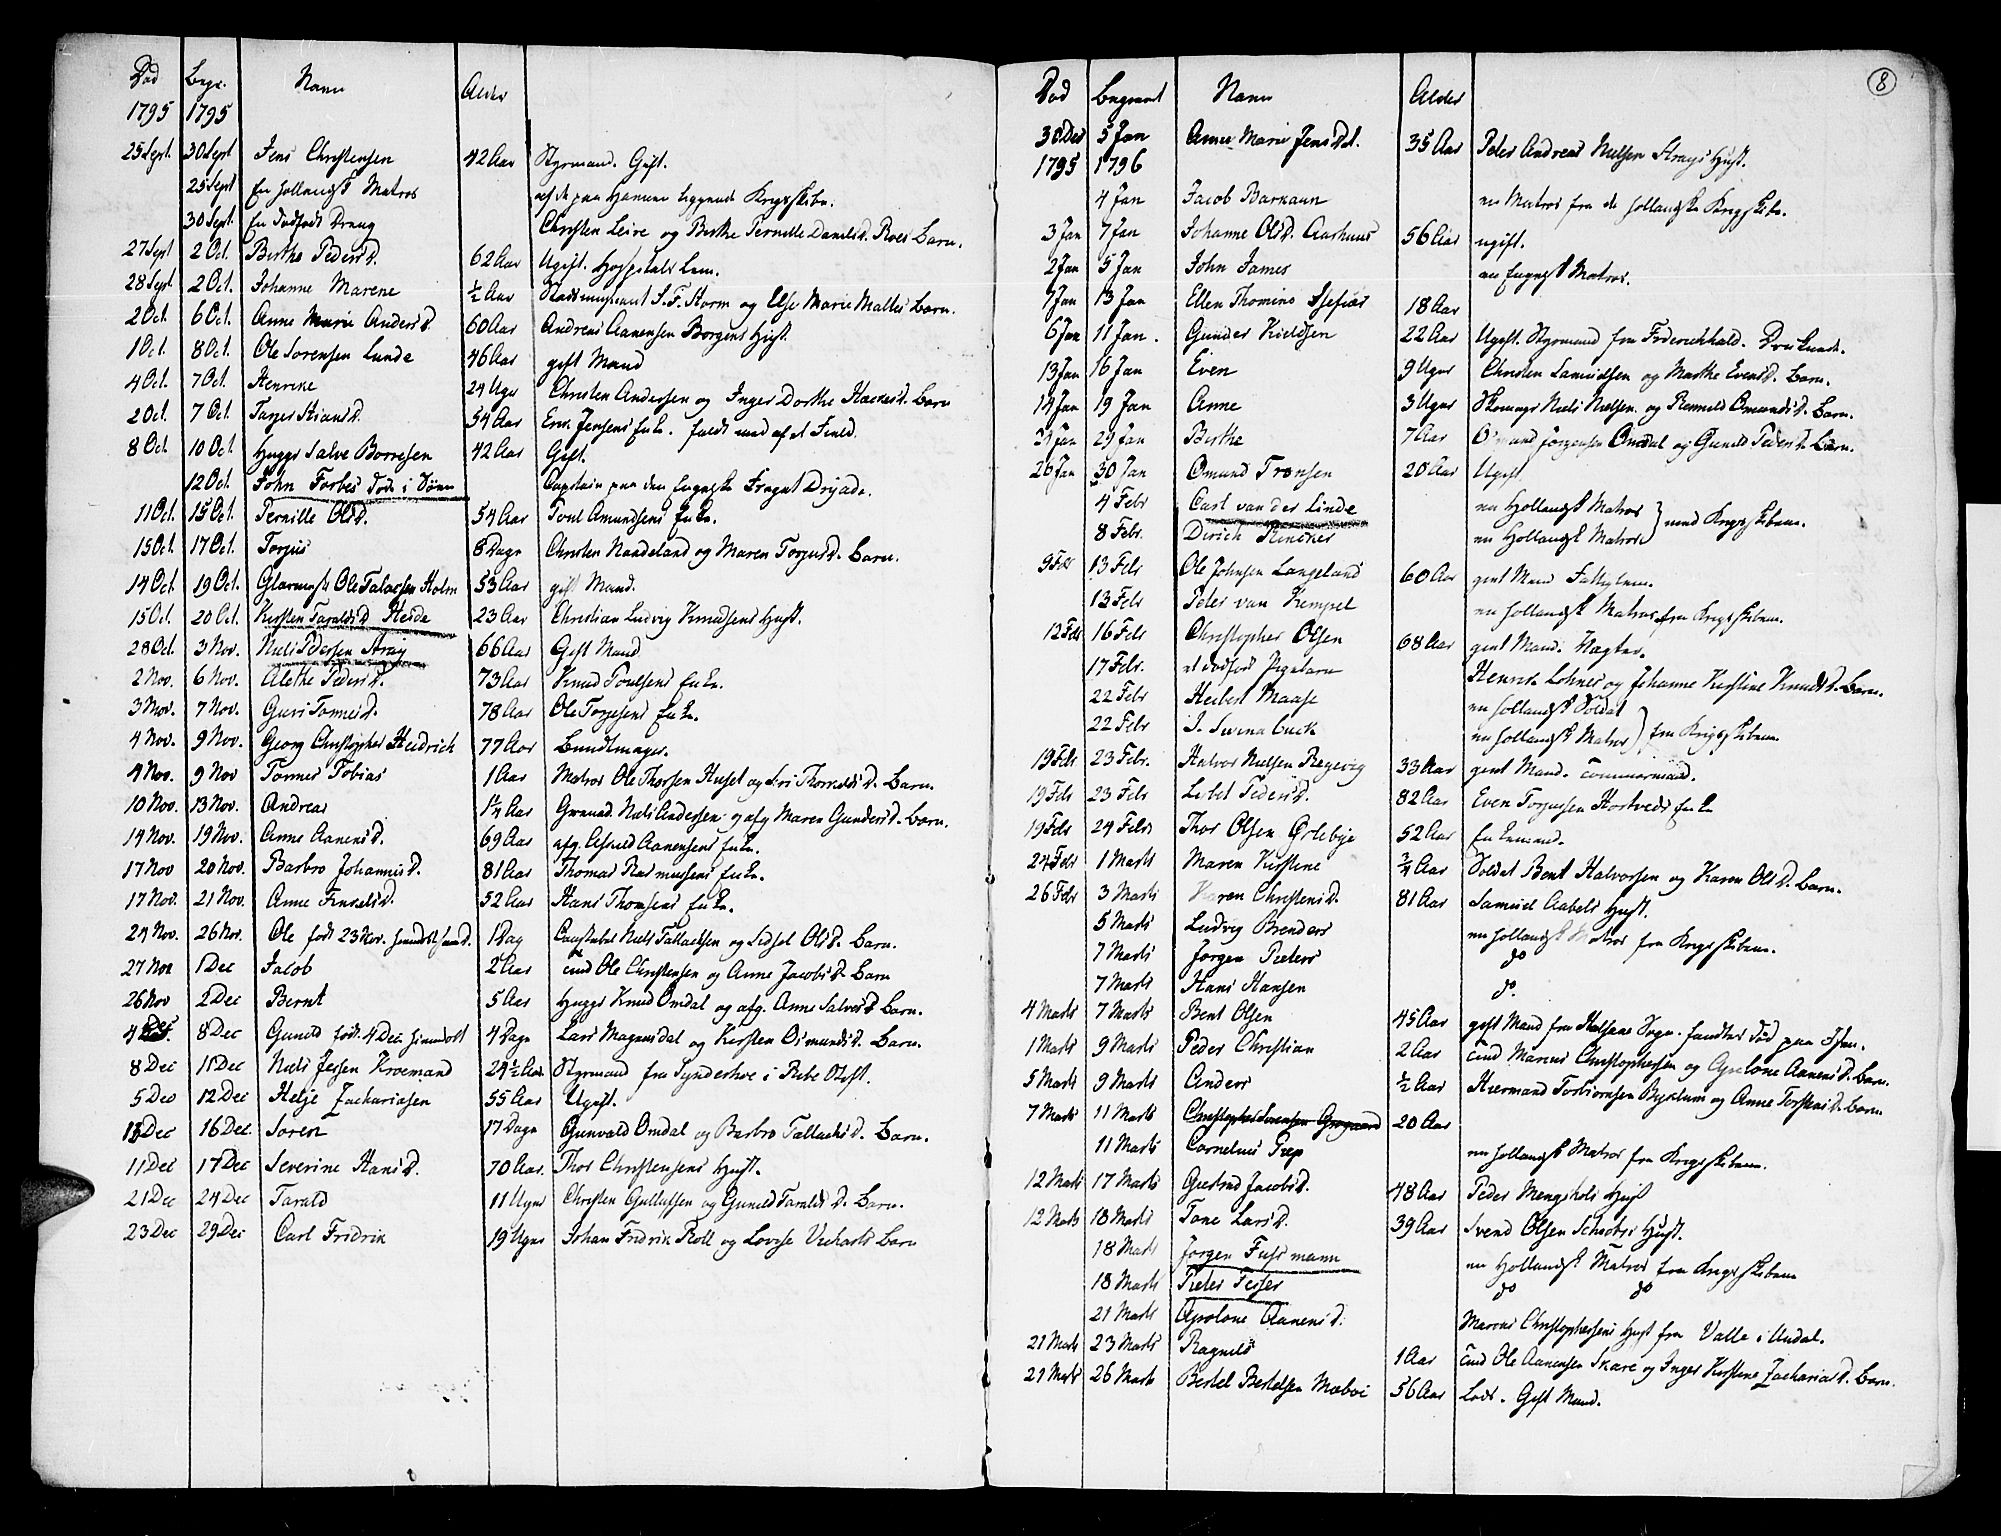 Død Begr. Navn Alder
1795 1795
25 Sept. 30 Sept Jens Christensen 42 Aar Styrmand. Gift.
25 Sept En hollandsk Matros af de paa Havnen liggende Krigsskibe.
30 Sept. En dødfødt Dreng Christen Leire og Birthe Pernille Danielsd. Roes Barn.
27 Sept 2 Oct. Birthe Pedersd. 62 Aar Ugift. Hospitals Lem.
28 Sept. 2 Oct. Johanne Marene ½ Aar Stadsmusicant S. F. Storm og Else Marie Malles Barn.
2 Oct. 6 Oct. Anne Marie Andersd. 60 Aar Andreas Aanensen Borgens Hust.
1 Oct. 8 Oct. Ole Sørensen Lunde 46 Aar gift Mand
4 Oct. 7 Oct. Henrine 24 Uger Christen Andersen og Inger Dorthe Hackesd. Barn
2 Oct. 7 Oct. Targer Stiansd. 54 Aar Erik Jensens Enke. faldt ned af et Field.
8 Oct. 10 Oct. Huggr Salve Børresen 42 Aar Gift.
12 Oct. John Forbes Død i Søen Capitain paa den Engelske Fregat Dryade.
11 Oct. 15 Oct. Pernille Olsd. 54 Aar Poul Amundsens Enke.
15 Oct. 17 Oct. Torjus 8 Dage Christen Nandeland og Maren Torjusd. Barn.
14 Oct. 19 Oct. Glarmester Ole Talaksen Holm 53 Aar gift Mand.
15 Oct. 20 Oct. Kirsten Taraldsd. Heide 23 Aar Christian Ludvig Knudsens Hust.
28 Oct. 3 Nov. Niels Pedersen Stray 66 Aar Gift Mand
2 Nov. 6 Nov. Alethe Pedersd. 73 Aar Knud Poulsens Enke.
3 Nov. 7 Nov. Guri Tomesd. 78 Aar Ole Torgesens Enke.
4 Nov. 9 Nov. Georg Christopher Heidrich 77 Aar Bundtmager.
4 Nov. 9 Nov Tønnes Tobias 1 Aar Matros Ole Thorsen Huset og Siri Thorkeldsd. Barn.
10 Nov. 13 Nov. Andreas 1¼ Aar Grænad. Niels Andersen og afg Maren Gundersd. Barn.
14 Nov. 19 Nov. Anne Aanensd. 69 Aar afg. Asmed Aanensens Enke.
17 Nov 20 Nov. Barbro Johannisd. 81 Aar Thomas Rasmussens Enke.
17 Nov. 21 Nov. Anne Frusd. 52 Aar Hans Thomsens Enke.
24 Nov. 26 Nov. Ole født 23 Nov. hiemdøbt 1 Dag Constabel Niels Tallachsen og Sidsel Olsd. Barn.
27 Nov 1 Dec Jacob 2 Aar Ole Christensen og Anne Jacobsd. Barn
26 Nov 2 Dec Bernt 5 Aar Huggr Knud Omdal og afg. Anne Salvesd. Barn.
4 Dec. 8 Dec Gunild født 4 Dec. hiemdøbt 4 Dage Lars Mogensdal og Kirsten Osmundsd. Barn.
8 Dec 11 Dec Niels Jessen Kroemand 24½ Aar. Styrmand fra Synderhoe i Ribe Stift.
5 Dec 12 Dec Helje Zachariasen 55 Aar Ugift.
13 Dec 16 Dec. Søren 17 Dage Gunvald Omdal og Barbro Tallachsd. Barn.
11 Dec 17 Dec Severine Hansd. 70 Aar. Thor Christensens Hust.
21 Dec 24 Dec Tarald 11 Uger Christen Gullufsen og Gunild Taraldsd. Barn.
23 Dec 29 Dec Carl Fridrik 19 Uger Johan Fridrik Roll og Lovise Vechards Barn
8
Død Begravet Navn Alder
30 Dec 5 Jan Anne Marie Jensd. 35 Aar Peder Andreas Nielsen Strays Hust.
1795 1796
4 Jan Jacob Barkaun en Matros fra de hollandske Krigsskibe.
3 Jan 7 Jan Johanne Olsd. Aarhuus 56 Aar ugift.
2 Jan 5 Jan John James en Engelsk Matros.
7 Jan 13 Jan Ellen Thomine 18 Aar
6 Jan 11 Jan. Gunder Kieldsen 22 Aar Ugift. Styrmand fra Friderichhald. Druknede.
13 Jan 16 Jan Even 9 Uger Christen Lauridsen og Marthe Evensd. Barn.
14 Jan 19 Jan Anne 3 Uger Skomagr Niels Nielsen og Ronnild Omundsd. Barn.
29 Jan Birthe 7 Aar Osmund Jørgensen Omdal og Gunild Pedersd. Barn.
26 Jan 30 Jan Omund Trønsen 20 Aar Ugift
4 Febr Carl van der Linde en Hollandsk Matros
8 Febr. Dirich Rincker en Hollandsk Matros } med Krigsskibene.
9 Febr 13 Febr Ole Johnsen Langeland 60 Aar gift Mand Fattiglem.
13 Febr Peter van Kempel en hollandsk Matros fra Krigsskibene.
12 Febr 16 Febr Christopher Olsen 68 Aar gift Mand. Vægter.
17 Febr. et dødfødt Pigebarn Henrik Lohnes og Johanne Kirstine Knudsd. Barn.
22 Febr Heibert Maase en hollandsk Soldat
22 Febr J. Swinabuck en hollandsk Matros } fra Krigsskibene
19 Febr 23 Febr. Halvor Nielsen Regevig 33 Aar gift Mand. Tømmermand.
19 Febr 23 Febr Lisbet Pedersd. 82 Aar Even Torjusens Hortveds Enke
19 Febr 24 Febr Thor Olsen Ørlebye 52 Aar Enkemand.
24 Febr 1 Marts Maren Kirstine ¾ Aar Soldat Bent Halvorsen og Karen Olsd. Barn.
26 Febr 3 Marts Karen Christensd. 81 Aar Samuel Aabels Hust.
5 Marts Ludvig Brenders en hollandsk Matros fra Krigsskibene.
7 Marts Jørgen Pieters do
7 Marts Hans Hansen do.
4 Marts 7 Marts Bent Olsen 45 Aar gift Mand fra Halsene Sogn. fandtes død paa Isen.
1 Marts 9 Marts Peder Christian 2 Aar Marcus Christophersen og Apelone Aanensd. Barn.
5 Marts 9 Marts Anders ½ Aar Hiermand Torbiørnsen Bycklum og Anne Torstensd. Barn
7 Marts 11 Marts Christopher Sørensen Grøgaard 20 Aar
11 Marts Cornelius Prep en hollandsk Matros fra Krigsskibene.
12 Marts 17 Marts Giertrud Jacobsd. 48 Aar Peder Mengshols Hust
12 Marts 18 Marts Tone Larsd. 39 Aar Svend Olsen Schiebys Hust.
18 Marts Jørgen Fussmann en Hollandsk Matros fra Krigsskibene
18 Marts Pieter Feser do do
21 Marts Apolone Aanensd. Marcus Christophersens Hust fra Valle i Undal.
21 Marts 23 Marts Ragnild 1 Aar Ole Aanensen Skare og Inger Kirstine Zachariasd. Barn.
21 Marts 26 Marts Bertel Bertelsen Mæboe 56 Aar Lods. Gift Mand.